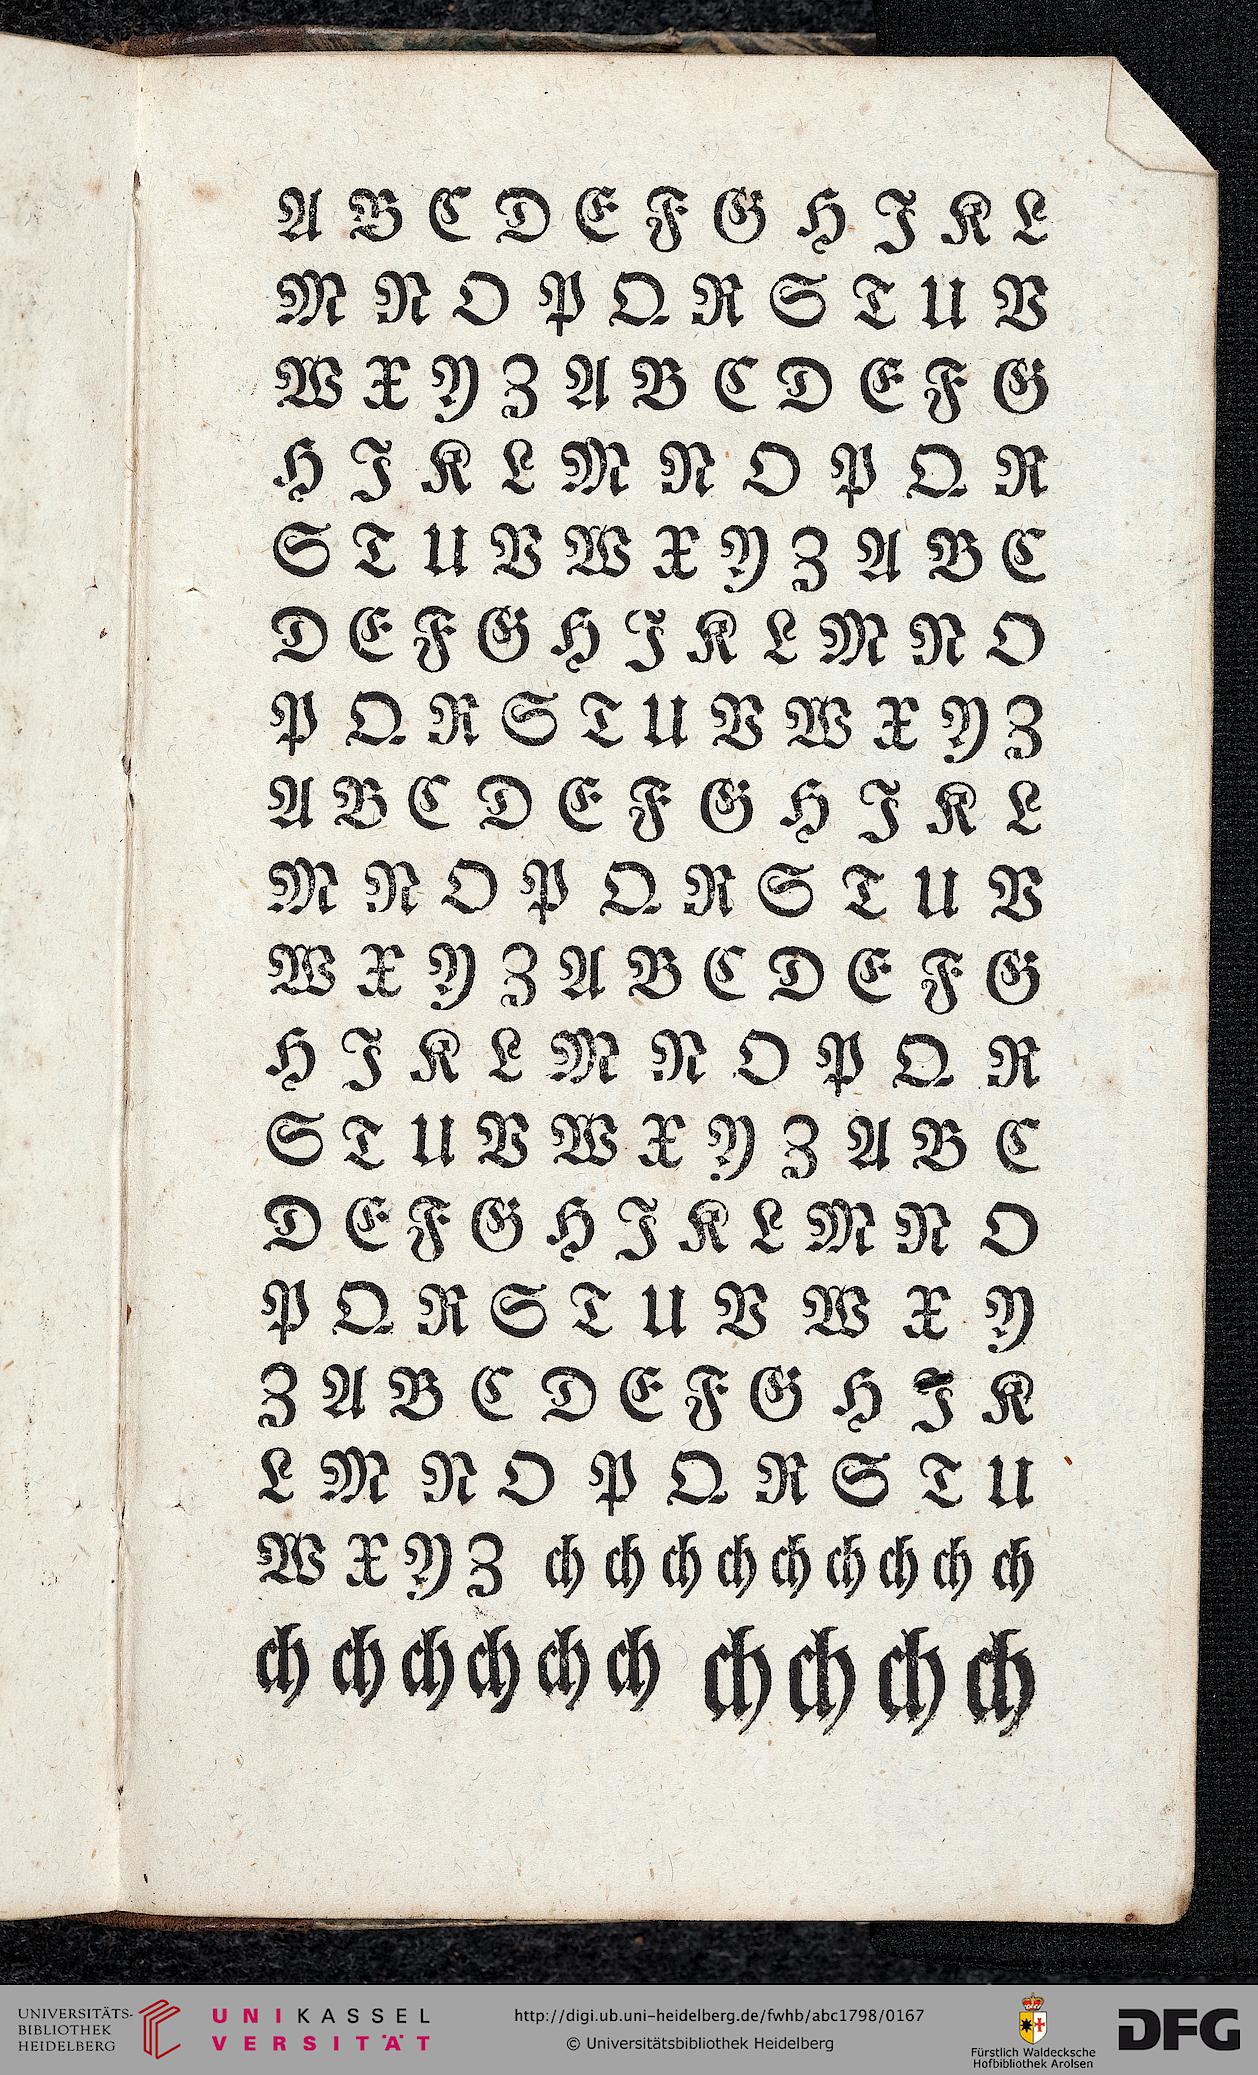 A B C D E F G H I K L
M N O P Q R S T U V
W X Y Z A B C D E F G
H I K L M N O P Q R
S T U V W X Y Z A B C
D E F G H I K L M N O
P Q R S T U V W X Y Z
A B C D E F G H I K L
M N O P Q R S T U V
W X Y Z A B C D E F G
H I K L M N O P Q R
S T U V W X Y Z A B C
D E F G H I K L M N O
P Q R S T U V W X Y
Z A B C D E F G H I K
L M N O P Q R S T U
W X Y Z ch ch ch ch ch ch ch ch ch
ch ch ch ch ch ch ch ch ch ch
UNIVERSITÄTS-
BIBLIOTHEK
HEIDELBERG
UNIKASSEL
VERSITÄT
http://digi.ub.uni-heidelberg.de/fwhb/abc1798/0167
© Universitätsbibliothek Heidelberg
Fürstlich Waldecksche
Hofbibliothek Arolsen
DFG